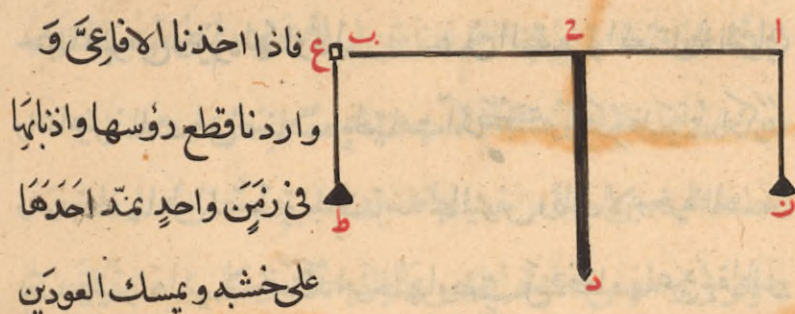 ا ح ب ع
فاذا اخذنا الافاعى و
واردنا قطع رؤسها واذنابها
فى زمن واحد نمد احدها
على خشبه ويمسك العودين
ن ط د